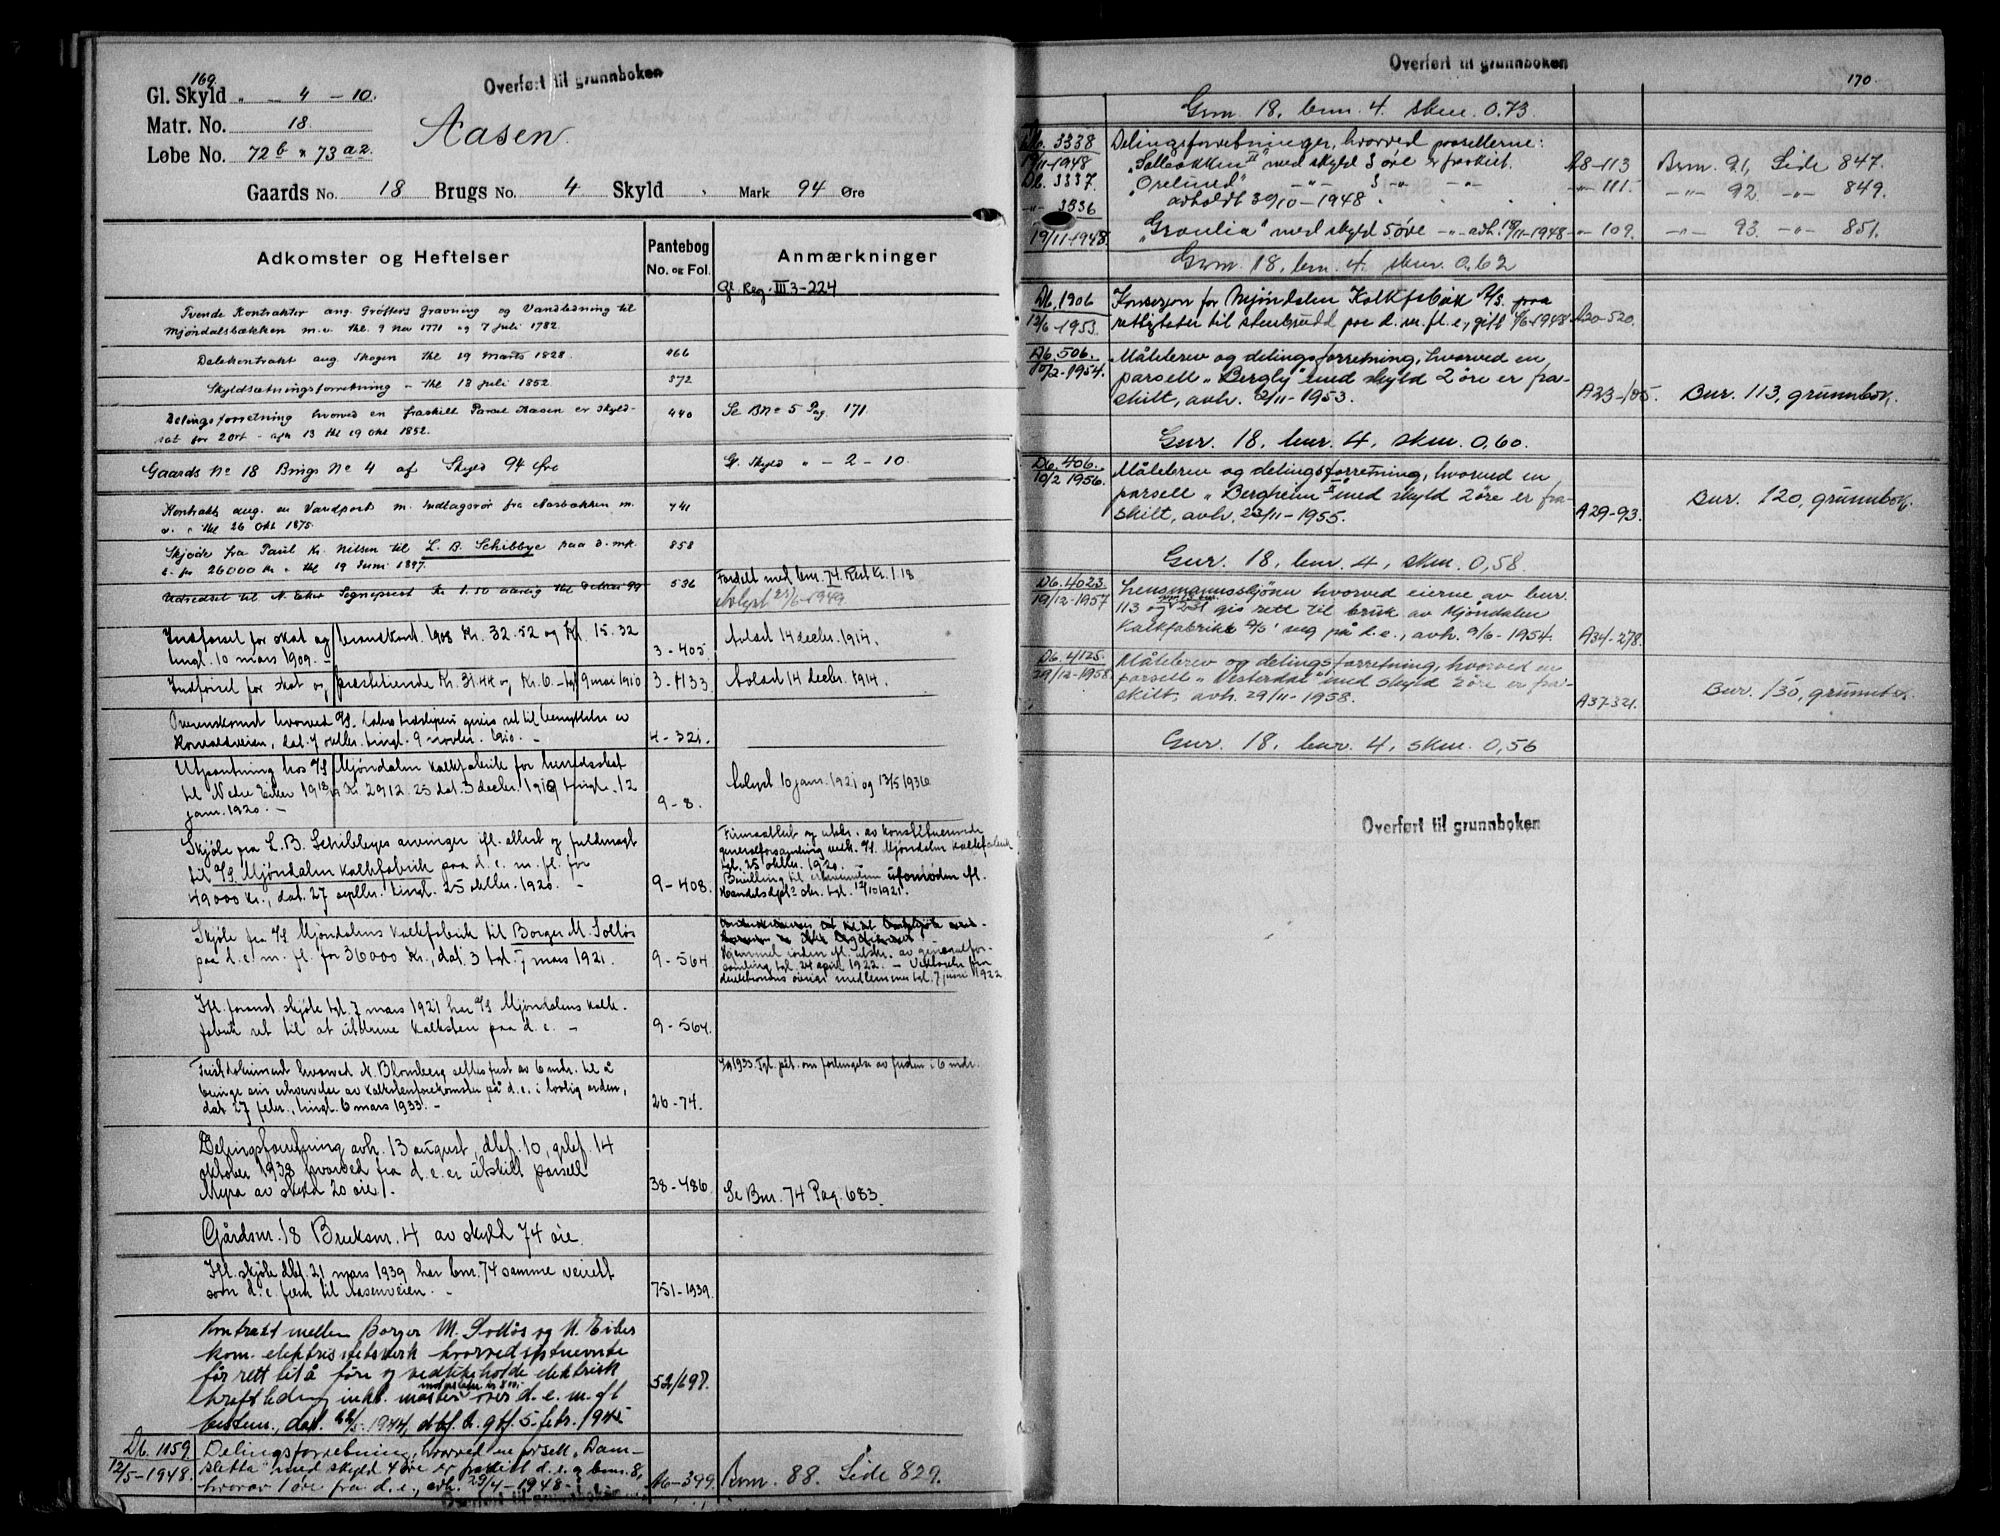 169.
Overført til grunnboken
Gl. Skyld " — 4 — 10.
Matr. No. 18.
Løbe No. 72 b " 73 a2.
Aasen.
Gaards No. 18 Brugs No. 4 Skyld , Mark 94 Øre
Adkomster og Heftelser
Pantebog
No. og Fol.
Anmærkninger
Gl. Reg. III 3-224
Tvende Kontrakter ang. Grøfters Gravning og Vandledning til
Mjøndalsbækken m.v. thl. 9 Nov 1771 og 7 Juli 1782.
Delekontrakt ang. Skogen thl 19 Marts 1828. 466
Skyldsætningsforretning — thl 18 Juli 1852. 372
Delingsforretning hvorved en fraskilt Parcel Aasen er skyld- 440 Se B.No 5 Pag. 171.
sat for 2 ort — afh 13 thl 19 Okt 1852.
Gaards No 18 Brugs No 4 af Skyld 94 Øre Gl. Skyld " — 2 — 10.
Kontrakt ang. en Vandpost m. Indlagsrør fra Aasbækken m. 741
v. " thl 26 Okt 1875.
Skjøde fra Paul Kr. Nilsen til L. B. Schibbye paa d. m fl. 858
e. for 26000 Kr. " thl 19 Juni 1897.
Udstedset til N. Eker Sogneprest Kr 1.50 aarlig thl 99 536 Fordelt med bnr. 74. Rest Kr. 1.18
Avlyst 23/6-1949
Indførsel for skat og brandkont. 1908 Kr. 32.52 og Kr. 15.32
tingl. 10 mars 1909. — 3-405. Avlæst 14 decbr. 1914.
Indførsel for skat og præstetiende Kr. 31.44 og Kr. 6.— tgl. 9 mai 1910 3-1133. Avlæst 14 decbr. 1914.
Overenskomst hvorved A/S. givis ret til benyttelse av
Horvaldveien, dat. 7 oktbr. tingl. 9 novbr. 1910. — 4-321.
Utpantning hos A/S Mjøndalen Kalkfabrik for herredsskat
til Nedre Eiker 1918/19 Kr. 2912.25 dat. 3 decbr. 1919 tingl. 12
jan. 1920. — 9-8. Avlyst 10 jan. 1921 og 13/5 1936
Skjøte fra L. B. Schibbyes arvinger ifl. attest og fuldmagt
til A/S Mjøndalen Kalkfabrik paa d. e. m. fl. for
49000 Kr., dat. 27 septbr. tingl. 25 oktbr. 1920. — 9-408.
Firmaattest og utskr. av konstituerende
generalforsamling vedk. A/S. Mjøndalen Kalkfabrik
tgl. 25 oktbr. 1920.
Bevilling til erhvervelsen utfærdiget ifl.
Handelsdpts skr. tgl. 17/10 1921.
Skjøte fra A/S Mjøndalens Kalkfabrik til Borger M. Solløs
paa d. e. m. fl. for 36000 Kr., dat. 3 tgl. 7 mars 1921. 9-564
Hjemmel i orden ifl. utskr. av generalfor-
samling tgl. 24 april 1922. — Vedtagelse fra
direktionens øvrige medlemmer tgl. 7 juni 1922
Ifl. foranst. skjøte tgl. 7 mars 1921 har A/S Mjøndalens Kalk-
fabrik ret til at utdrive kalksten paa d. e. — 9-564.
Festdokument hvorved N. Blomberg settes fast av 6 mdr. til å
bringe sin erhvervelse av kalkstenforekomster på d. e. i lovlig orden,
dat. 27 febr., tingl. 6 mars 1933. — 26-74.
1933. Tgl. påt. om forlengelse av fristen i 6 mdr.
Delingsforretning avh. 13 august, dbf. 10, grbf. 14
oktober 1938 hvorved fra d. e. er utskilt parsell
Myra av skyld 20 øre. 38-486. Se Bnr. 74 Pag. 683.
Gårdsnr. 18 Bruksnr. 4 av skyld 74 øre.
Ifl. skjøte dbf. 21 mars 1939 har bnr. 74 samme veirett
som d. e. frem til Aasenveien. — 751-1939.
Kontrakt mellem Borger M. Solløs og N. Eiker
kom. elektrisitetsverk hvorved sistnevnte
får rett til å føre og vedlikeholde elektrisk
kraftledning inkl. master over d. e. m. fl.
bestem., dat. 22/5-1944, dbf. 2. gbf. 5. febr. 1945 52/697.
Db. 1059
12/5-1948.
Delingsforretning, hvorved en parsell „Dam-
sletta" med skyld 4 øre er fraskilt d. e. og bnr. 8,
hvorav 1 øre fra d. e., avh. 29/4-1948. A6-399. Bnr. 88. Side 829.
Overført til grunnboken
Overført til grunnboken
170.
Gnr. 18, bnr. 4. skm. 0,73.
Db. 3338
19/11-1948
Delingsforretninger, hvorved parsellerne:
„Solbakken II" med skyld 3 øre er fraskilt. A8-113 Bnr. 91, Side 847.
Db. 3337.
„Orelund" —"— 3 —"— —"— —"— 111. —"— 92. —"— 849.
—"— 3336
avholdt 30/10-1948.
19/11-1948.
„Granlia" med skyld 5 øre —"— avh. 18/11-1948 —"— 109. —"— 93. —"— 851.
Gnr. 18, bnr. 4. skm. 0,62
Db. 1906
12/6-1953.
Konsesjon for Mjøndalen Kalkfabrik A/S. paa
rettigheter til stenbrudd paa d. m. fl. e., gitt 4/6-1948. A20-520.
Db. 506.
10/2-1954.
Målebrev og delingsforretning, hvorved en
parsell „Bergly" med skyld 2 øre er fra-
skilt, avh. 2/11-1953. A23-185. Bnr. 113, grunnbok.
Gnr. 18. bnr. 4, skm. 0,60.
Db. 406.
10/2 1956.
Målebrev og delingsforretning, hvorved en
parsell „Bergheim II" med skyld 2 øre er fra-
skilt, avh. 23/11-1955. A29-93. Bnr. 120, grunnbok.
Gnr. 18. bnr. 4, skm. 0,58.
Db. 4023.
19/12-1957
Lensmannsskjønn hvorved eierne av bnr.
113 og 120 gis rett til bruk av Mjøndalen
Kalkfabrikk A/S' veg på d. e., avh. 9/6-1954. A34-278.
Db. 4125.
29/12-1958.
Målebrev og delingsforretning, hvorved en
parsell „Vesterdal" med skyld 2 øre er fra-
skilt, avh. 29/11-1958. A37-321. Bnr. 130, grunnbok.
Gnr. 18. bnr. 4, skm. 0,56
Overført til grunnboken